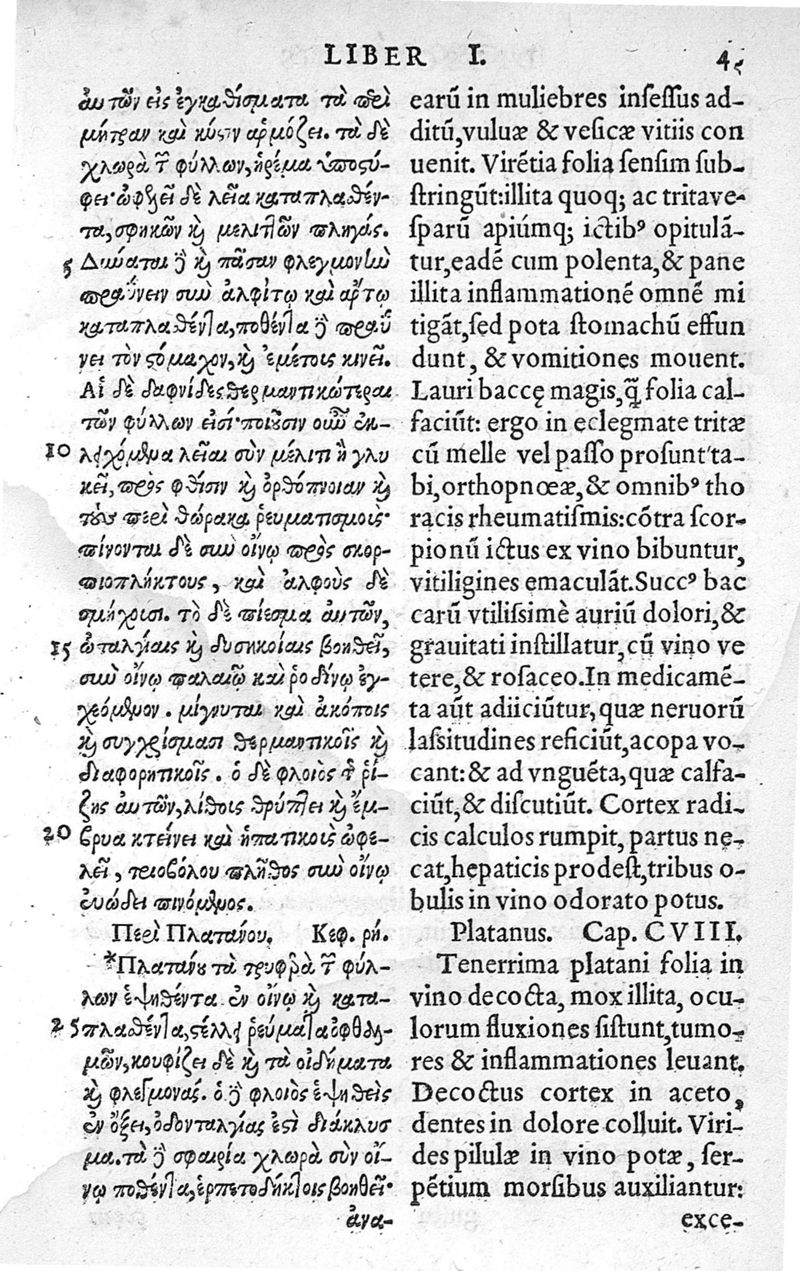 LIBER I. 45
αὐτῶν εἰς ἐγκαθίσματα τὰ περὶ
μήτραν καὶ κύστιν ἁρμόζει. τὰ δὲ
χλωρὰ τῶν φύλλων, ἠρέμα ὑποστύ-
φει· ὠφελεῖ δὲ λεῖα καταπλασθέν-
τα, σφηκῶν καὶ μελιττῶν πληγάς.
5 Δύναται δὲ καὶ πᾶσαν φλεγμονὴν
πραΰνειν σὺν ἀλφίτῳ καὶ ἄρτῳ
καταπλασθέντα, ποθέντα δὲ πραΰ
νει τὸν στόμαχον, καὶ ἐμέτοις κινεῖ.
Αἱ δὲ δαφνίδες θερμαντικώτεραι
τῶν φύλλων εἰσί· ποιοῦσιν οὖν ἐκ-
10 λειχόμεναι λεῖαι σὺν μέλιτι ἢ γλυ
κεῖ, πρὸς φθίσιν καὶ ὀρθόπνοιαν καὶ
τοὺς περὶ θώρακα ῥευματισμούς·
πίνονται δὲ σὺν οἴνῳ πρὸς σκορ-
πιοπλήκτους, καὶ ἀλφοὺς δὲ
σμήχουσι. τὸ δὲ πίεσμα αὐτῶν,
15 ὠταλγίαις καὶ δυσηκοίαις βοηθεῖ,
σὺν οἴνῳ παλαιῷ καὶ ῥοδίνῳ ἐγ-
χεόμενον. μίγνυται καὶ ἀκόποις
καὶ συγχρίσμασι θερμαντικοῖς καὶ
διαφορητικοῖς. ὁ δὲ φλοιὸς τῆς ῥί-
ζης αὐτῶν, λίθοις θρύπτει καὶ ἔμ-
20 βρυα κτείνει καὶ ἡπατικοὺς ὠφε-
λεῖ, τριοβόλου πλῆθος σὺν οἴνῳ
εὐώδει πινόμενος.
Περὶ Πλατάνου. Κεφ. ρη.
*Πλατάνου τὰ τρυφερὰ τῶν φύλ-
λων ἑψηθέντα ἐν οἴνῳ καὶ κατα-
25 πλασθέντα, στέλλει ῥεύματα ὀφθαλ-
μῶν, κουφίζει δὲ καὶ τὰ οἰδήματα
καὶ φλεγμονάς. ὁ δὲ φλοιὸς ἑψηθεὶς
ἐν ὄξει, ὀδονταλγίας ἐστὶ διάκλυσ
μα. τὰ δὲ σφαιρία χλωρὰ σὺν οἴ-
νῳ ποθέντα, ἑρπετοδήκτοις βοηθεῖ·
ἀνα-
earũ in muliebres inſeſſus ad-
ditũ, vuluæ & veſicæ vitiis con
uenit. Virẽtia folia ſenſim ſub-
ſtringũt: illita quoq; ac trita ve-
ſparũ apiũmq; ictibꝰ opitulã-
tur, eadẽ cum polenta, & pane
illita inflammationẽ omnẽ mi
tigãt, ſed pota ſtomachũ effun
dunt, & vomitiones mouent.
Lauri baccę magis, q̃ folia cal-
faciũt: ergo in eclegmate tritæ
cũ melle vel paſſo proſunt ta-
bi, orthopnœæ, & omnibꝰ tho
racis rheumatiſmis: cõtra ſcor-
pionũ ictus ex vino bibuntur,
vitiligines emaculãt. Succꝰ bac
carũ vtiliſsimè auriũ dolori, &
grauitati inſtillatur, cũ vino ve
tere, & roſaceo. In medicamẽ-
ta aũt adiiciũtur, quæ neruorũ
laſsitudines reficiũt, acopa vo-
cant: & ad vnguẽta, quæ calfa-
ciũt, & diſcutiũt. Cortex radi-
cis calculos rumpit, partus ne-
cat, hepaticis prodeſt, tribus o-
bulis in vino odorato potus.
Platanus. Cap. CVIII.
Tenerrima platani folia in
vino decocta, mox illita, ocu-
lorum fluxiones ſiſtunt, tumo-
res & inflammationes leuant.
Decoctus cortex in aceto,
dentes in dolore colluit. Viri-
des pilulæ in vino potæ, ſer-
pẽtium morſibus auxiliantur:
exce-